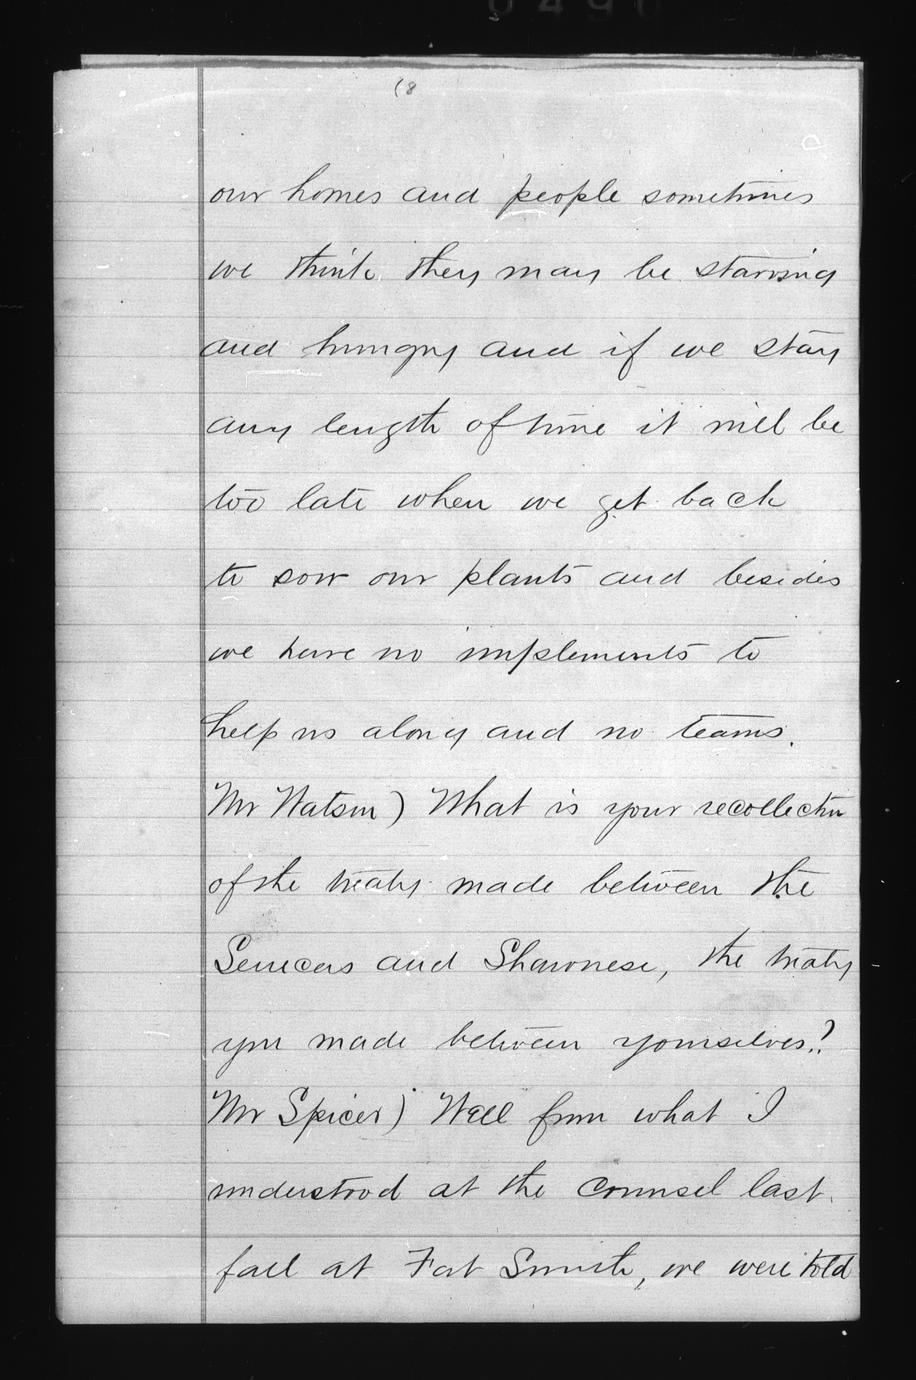 (8
our homes and people sometimes
we think they may be starving
and hungry and if we stay
any length of time it will be
too late when we get back
to sow our plants and besides
we have no implements to
help us along and no teams.
Mr Watson) What is your recollection
of the treaty made between the
Senecas and Shawnese, the treaty
you made between yourselves?
Mr Spicer) Well from what I
understood at the counsel last
fall at Fort Smith, we were told